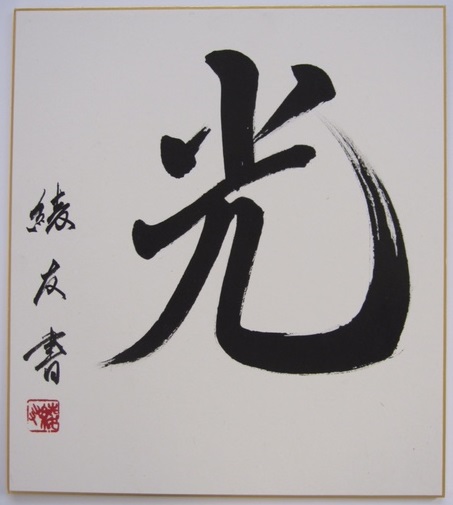 光
綾友書